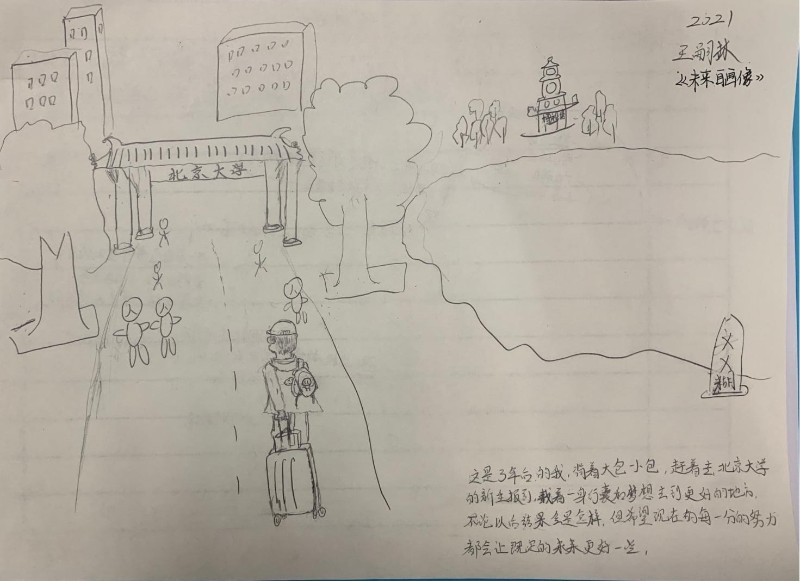 2021
王嗣林
《未来画像》
北京大学
XX湖
这是3年后的我,背着大包小包,赶着去北京大学
的新生报到,载着一身行囊和梦想去到更好的地方,
不论以后结果会是怎样,但希望现在的每一分的努力
都会让既定的未来更好一些。